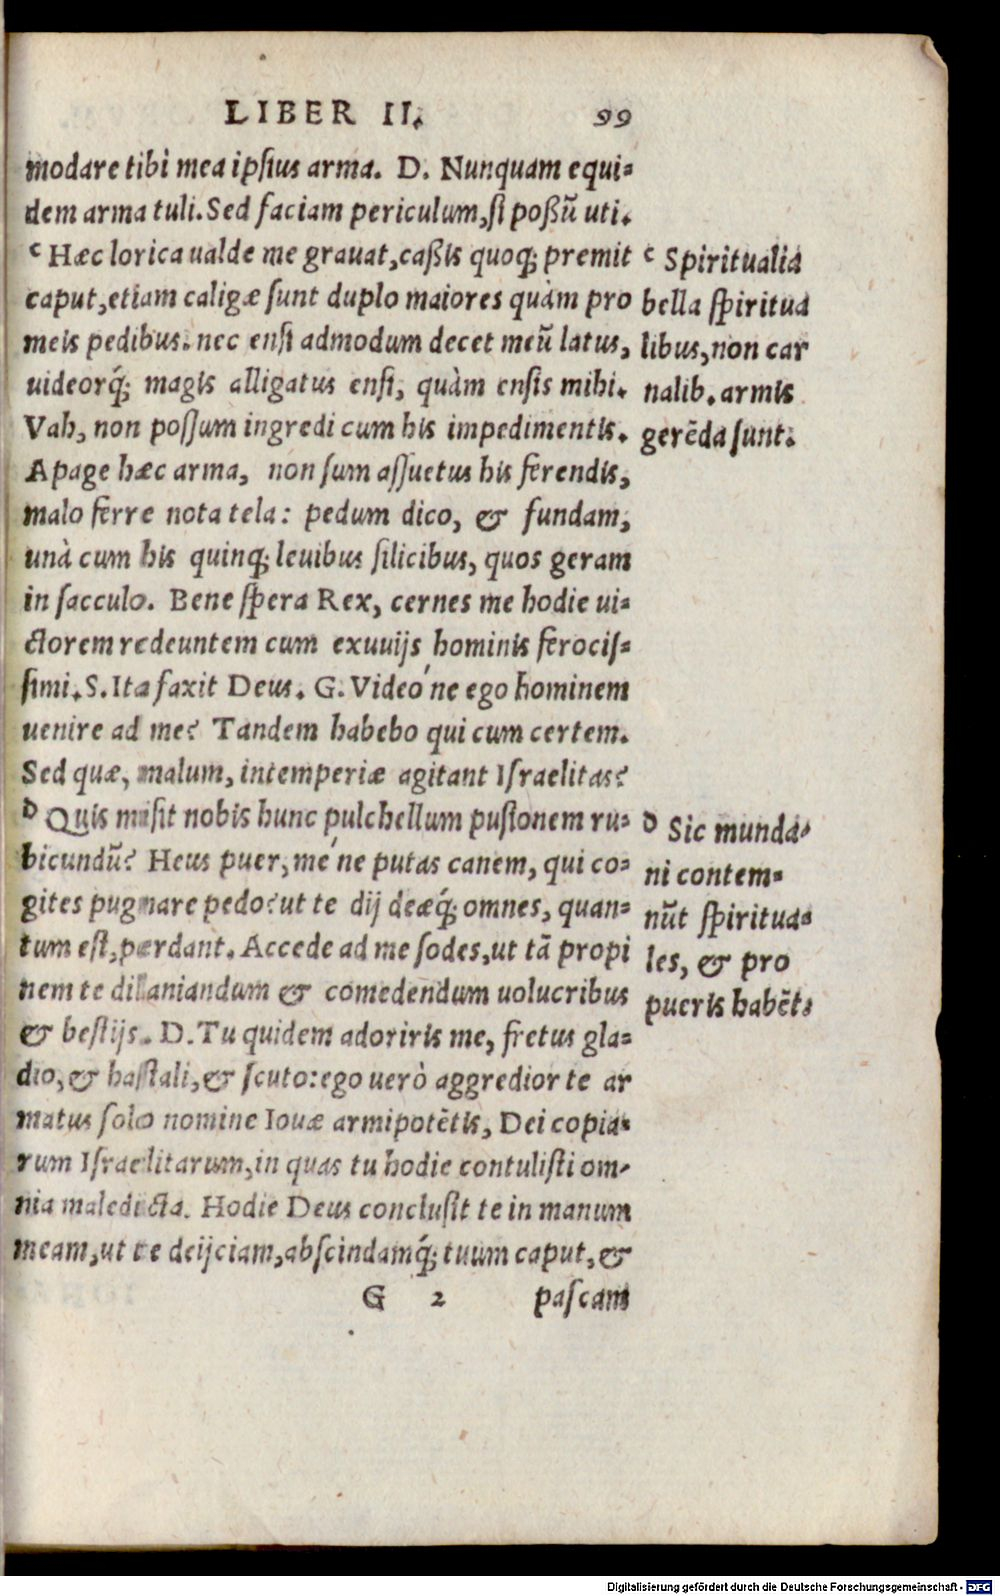 LIBER II. 99
modare tibi mea ipsius arma. D. Nunquam equi-
dem arma tuli. Sed faciam periculum, si possũ uti.
c Hæc lorica ualde me grauat, cassis quoq; premit
caput, etiam caligæ sunt duplo maiores quàm pro
meis pedibus. nec ensi admodum decet meũ latus,
uideorq́; magis alligatus ensi, quàm ensis mihi.
Vah, non possum ingredi cum his impedimentis.
Apage hæc arma, non sum assuetus his ferendis,
malo ferre nota tela: pedum dico, & fundam,
unà cum his quinq; leuibus silicibus, quos geram
in sacculo. Bene spera Rex, cernes me hodie ui-
ctorem redeuntem cum exuuijs hominis ferocis-
simi. S. Ita faxit Deus. G. Video'ne ego hominem
uenire ad me? Tandem habebo qui cum certem.
Sed quæ, malum, intemperiæ agitant Israelitas?
D Quis misit nobis hunc pulchellum pusionem ru-
bicundũ? Heus puer, me'ne putas canem, qui co-
gites pugnare pedo? ut te dij deæq́; omnes, quan-
tum est, perdant. Accede ad me sodes, ut tã propi
nem te dilaniandum & comedendum uolucribus
& bestijs. D. Tu quidem adoriris me, fretus gla-
dio, & hastali, & scuto: ego uerò aggredior te ar
matus solo nomine Iouæ armipotẽtis, Dei copia-
rum Israelitarum, in quas tu hodie contulisti om-
nia maledicta. Hodie Deus conclusit te in manum
meam, ut te deijciam, abscindamq́; tuum caput, &
G 2 pascam
c Spiritualia
bella spiritua
libus, non car
nalib. armis
gerẽda sunt.
D Sic munda-
ni contem-
nũt spiritua-
les, & pro
pueris habẽt.
Digitalisierung gefördert durch die Deutsche Forschungsgemeinschaft - DFG